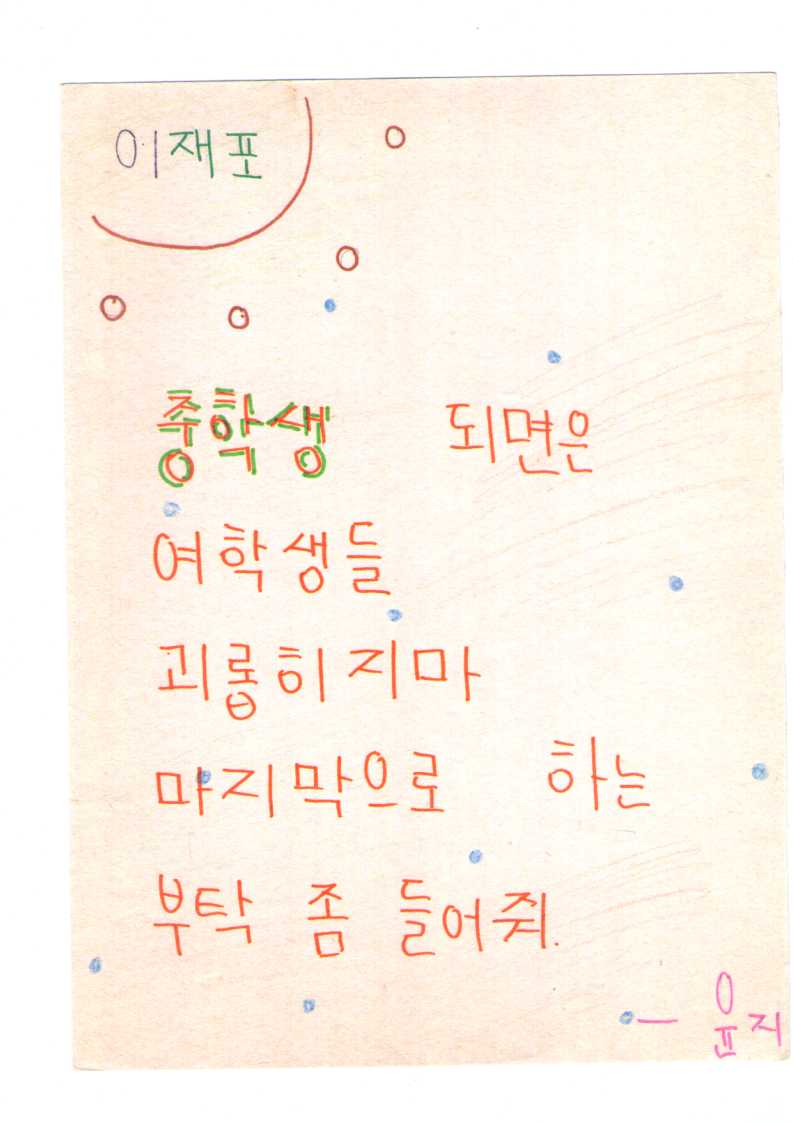 이재포
중학생 되면은
여학생들
괴롭히지마
마지막으로 하는
부탁 좀 들어줘.
- 윤지